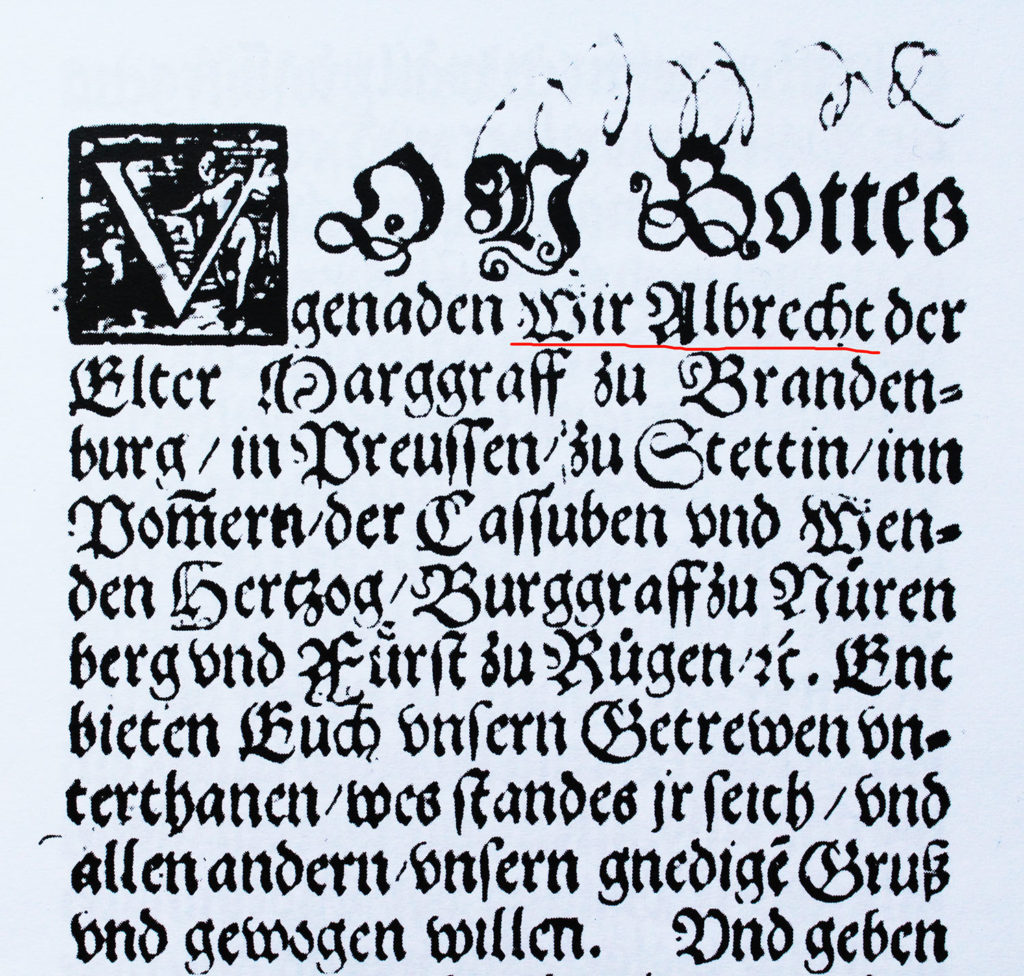 VON Gottes
genaden Wir Albrecht der
Elter Marggraff zu Branden⸗
burg / in Preussen / zu Stettin / inn
Pom̃ern / der Cassuben vnd Wen⸗
den Hertzog / Burggraff zu Nüren
berg vnd Fürst zu Rügen / ꝛc. Ent
bieten Euch vnsern Getrewen vn⸗
terthanen / wes standes jr seich / vnd
allen andern / vnsern gnedigẽ Gruß
vnd gewogen willen. Vnd geben